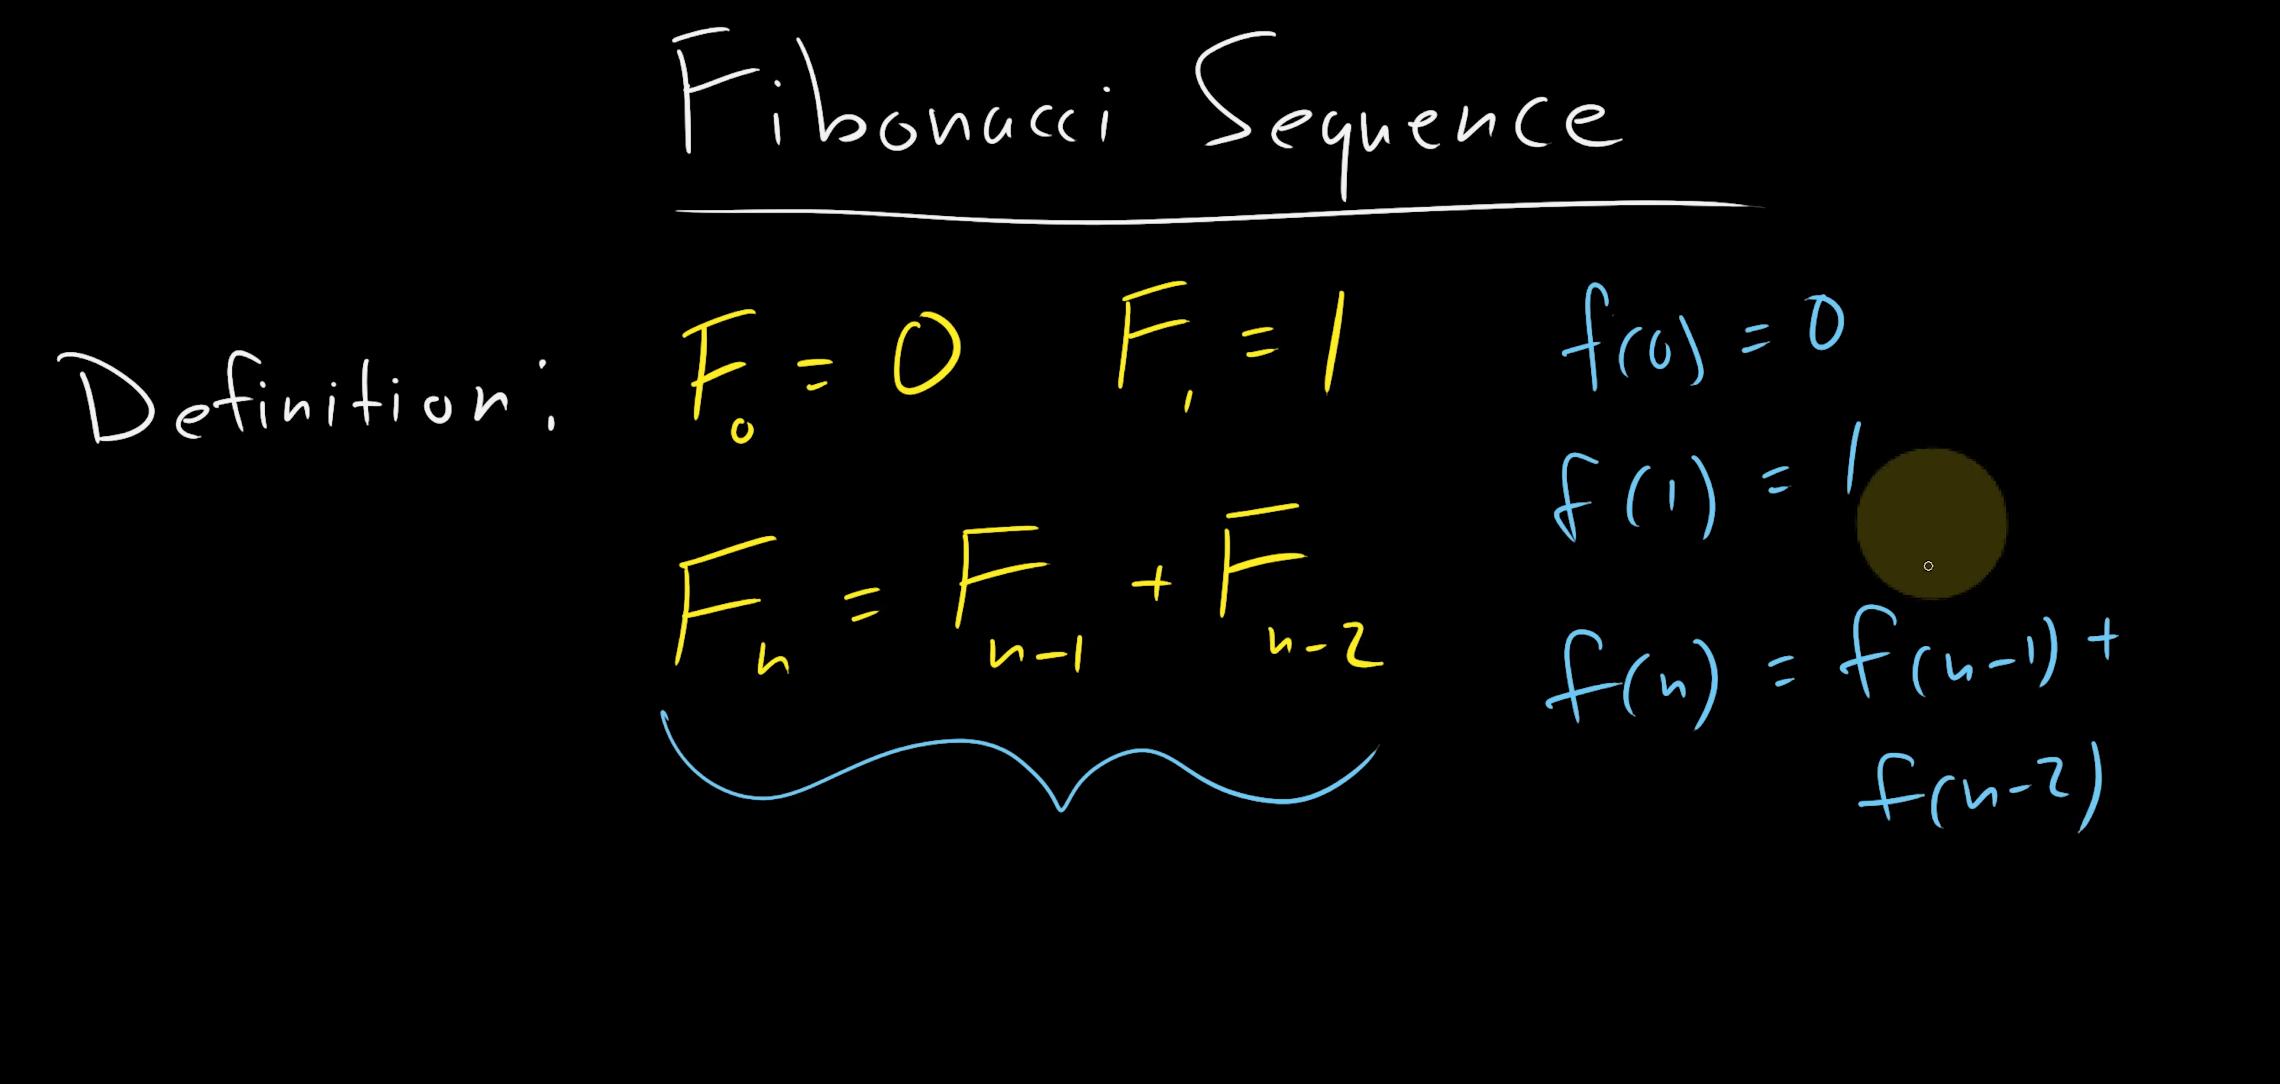 Fibonacci Sequence
Definition: F₀ = 0 F₁ = 1
Fₙ = Fₙ₋₁ + Fₙ₋₂
f(0) = 0
f(1) = 1
f(n) = f(n-1) +
f(n-2)